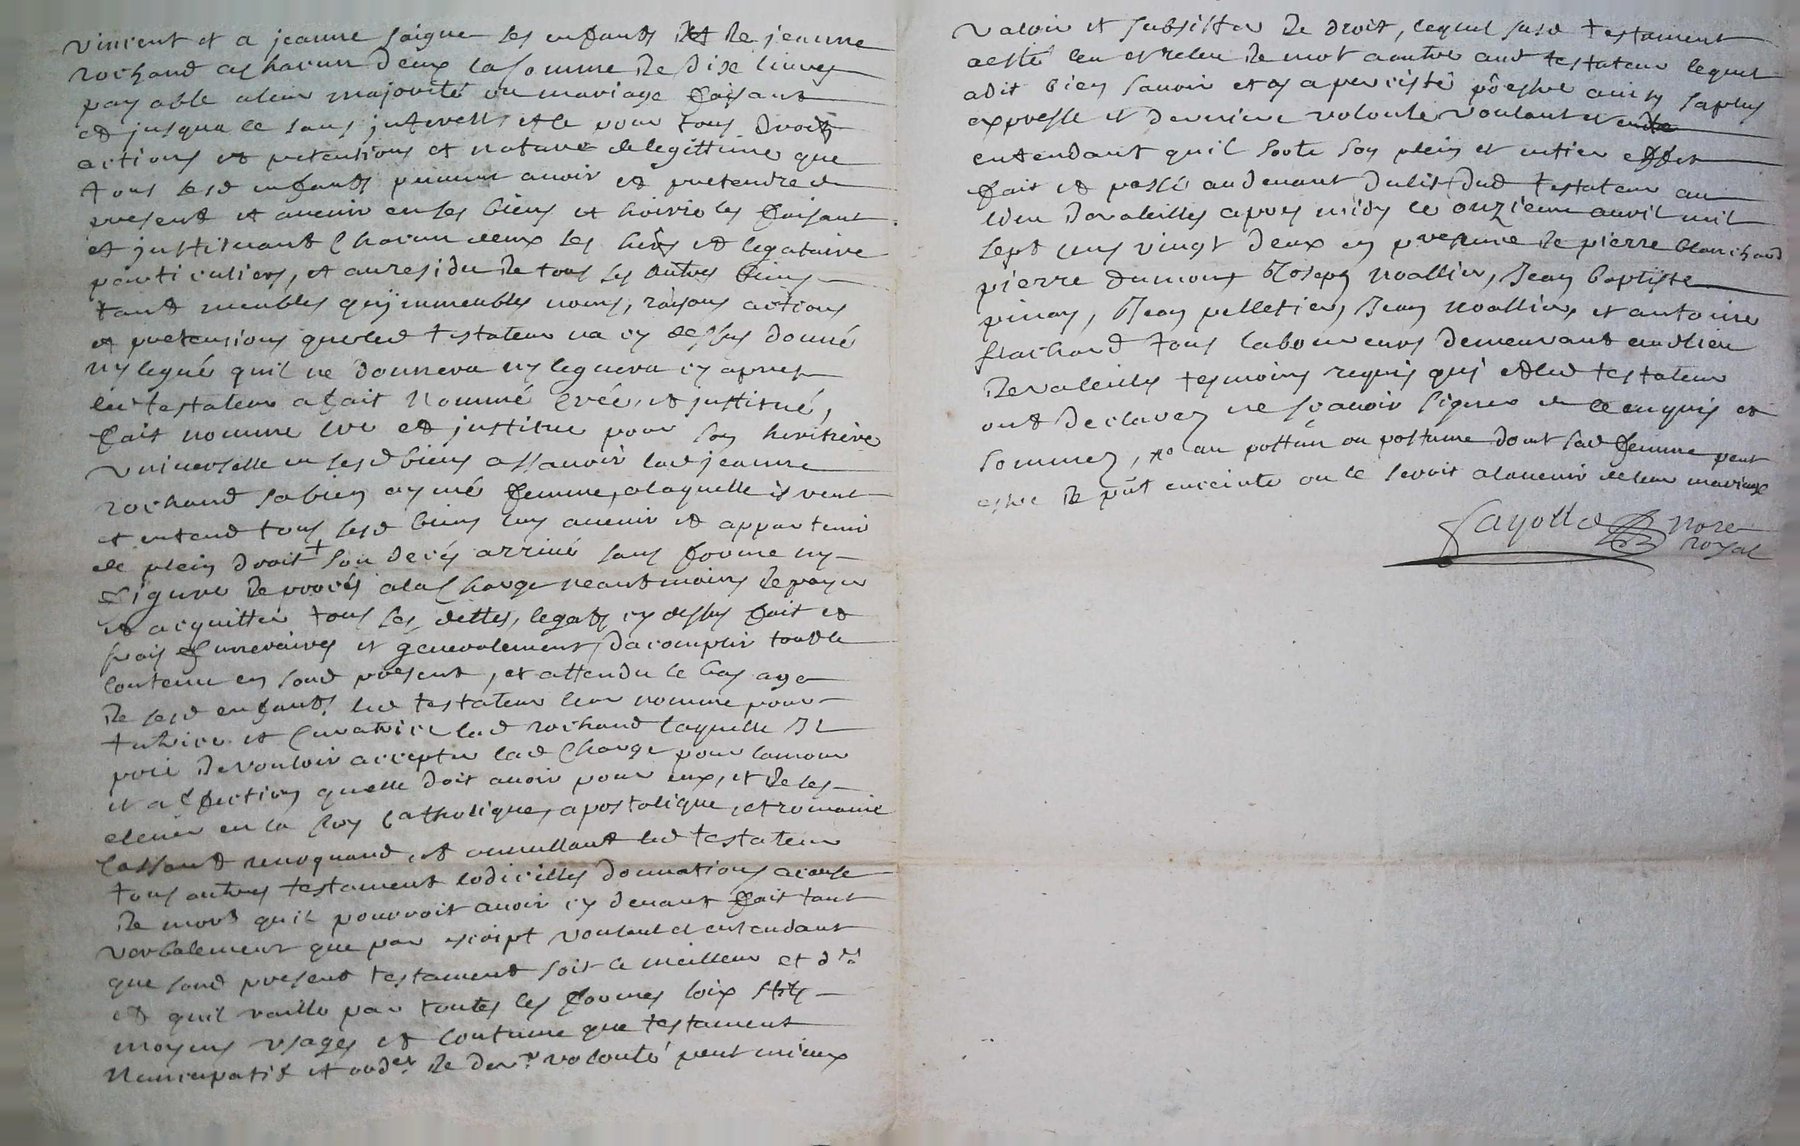 vincent et a jeanne saigne ses enfants de jeanne
rochand a chacun deux la somme de dixe livres
payable a leur majorité ou mariage faisant
et jusqua ce sans jnterest et ce pour tous droits
actions et pretentions et nature de legittime que
tous sesd enfants peuvent avoir et pretendre de
present et avenir en ses biens et hoiries les faisant
et jnstituant chacun deux ses hers et legataire
particuliers, et au residu de tous ses autres biens
tant meubles qu'jmmeubles noms, raisons actions
et pretensions que led testateur na cy dessus donné
ny legué quil ne donnera ny leguera cy apres
led testateur a fait nommé créé, et jnstitué,
fait nomme cré et jnstitue pour son heritiere
universelle en sesd biens assavoir lad jeanne
rochand sa bien aymé femme, a laquelle il veut
et entend tous sesd biens luy avenir et appartenir
de plein droit + son decés arrivé sans forme ny
figure de procés a la charge neantmoins de payer
et acquitter tous ses dettes, legats cy dessus fait et
frais funeraires et generalement dacomplir tout le
contenu en sond present, et attendu le bas age
de sesd enfants led testateur leur nomme pour
tutrice et curatrice lad rochand laquelle Il
prie de vouloir accepter lad charge pour lamour
et affection quelle doit avoir pour eux, et de les
elever en la foy catholique, apostolique, et romaine
cassant revoquand, et annullant led testateur
tous autres testament codicilles donnations a cause
de mort quil pourroit avoir cy devant fait tant
verbalement que par escript voulant et entendant
que sond present testament soit le meilleur et dr
et quil vaille par toutes les formes loix stils
moyens usages et coutume que testament
Nuncupatif et ordre de derre volonté peut mieux
valoir et subsister de droit, lequel susd testament
a esté leu et releu de mot a autre aud testateur lequel
a dit bien savoir et y a percisté pr estre ainsy sa plus
expresse et derniere volonté voulant et
entendant quil sorte son plein et entier effet
fait et passé au devant du lit dud testateur au
lieu de valeilles apres midy le onzieme avril mil
sept cens vingt deux en presence de pierre blanchard
pierre dumont Joseph noallier, Jean baptiste
pinay, Jean pelletier, Jean noallier, et antoine
flachard tous laboureurs demeurant aud lieu
de valeilles tesmoins requis qui et led testateur
ont declarez ne scavoir signer de ce enquis et
sommez, + ou posthu ou postume dont sad femme peut
estre de pnt enceinte ou le seroit a lavenir de leur mariage
Fayolle nore
royal